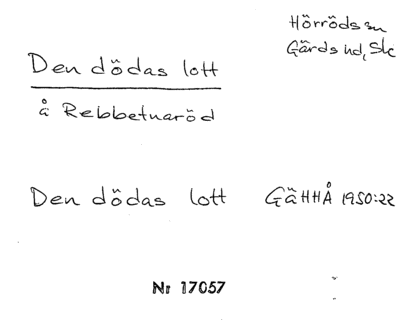 Hörröds sn
Gärds hd, Sk
Den dödas lott
å Rebbetuaröd
Den dödas lott GäHHÅ 1950:22
Nr 17057